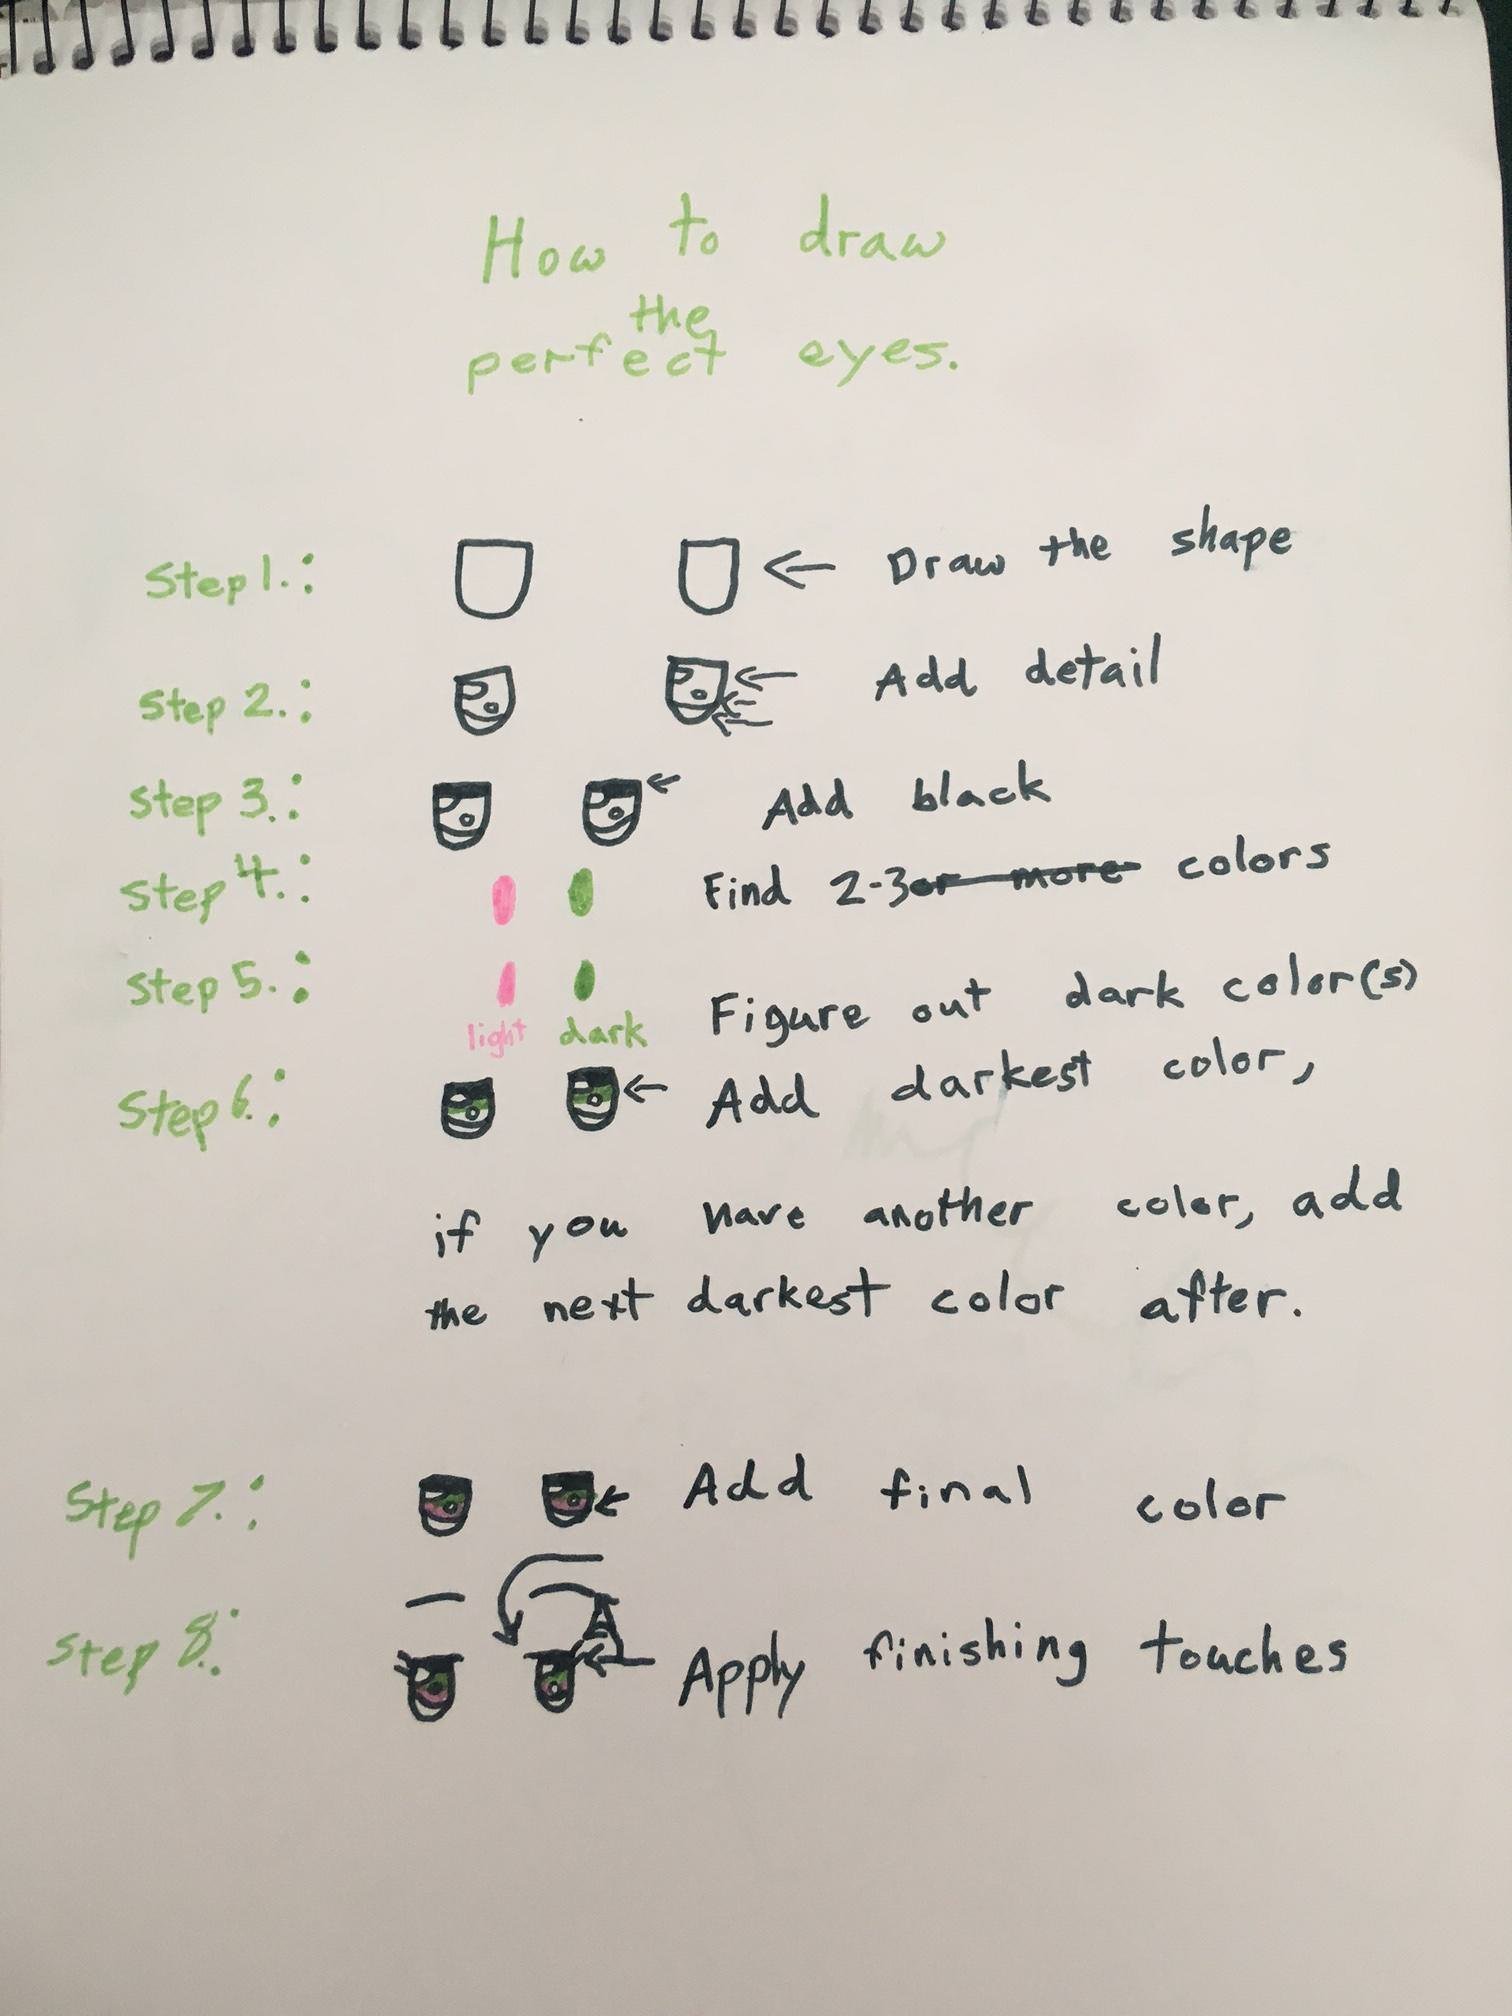 How to draw
the
perfect eyes.
Step 1.: Draw the shape
Step 2.: Add detail
Step 3.: Add black
Step 4.: Find 2-3 or more colors
Step 5.: Figure out dark color(s)
light dark
Step 6.: Add darkest color,
if you have another color, add
the next darkest color after.
Step 7.: Add final color
Step 8.: Apply finishing touches